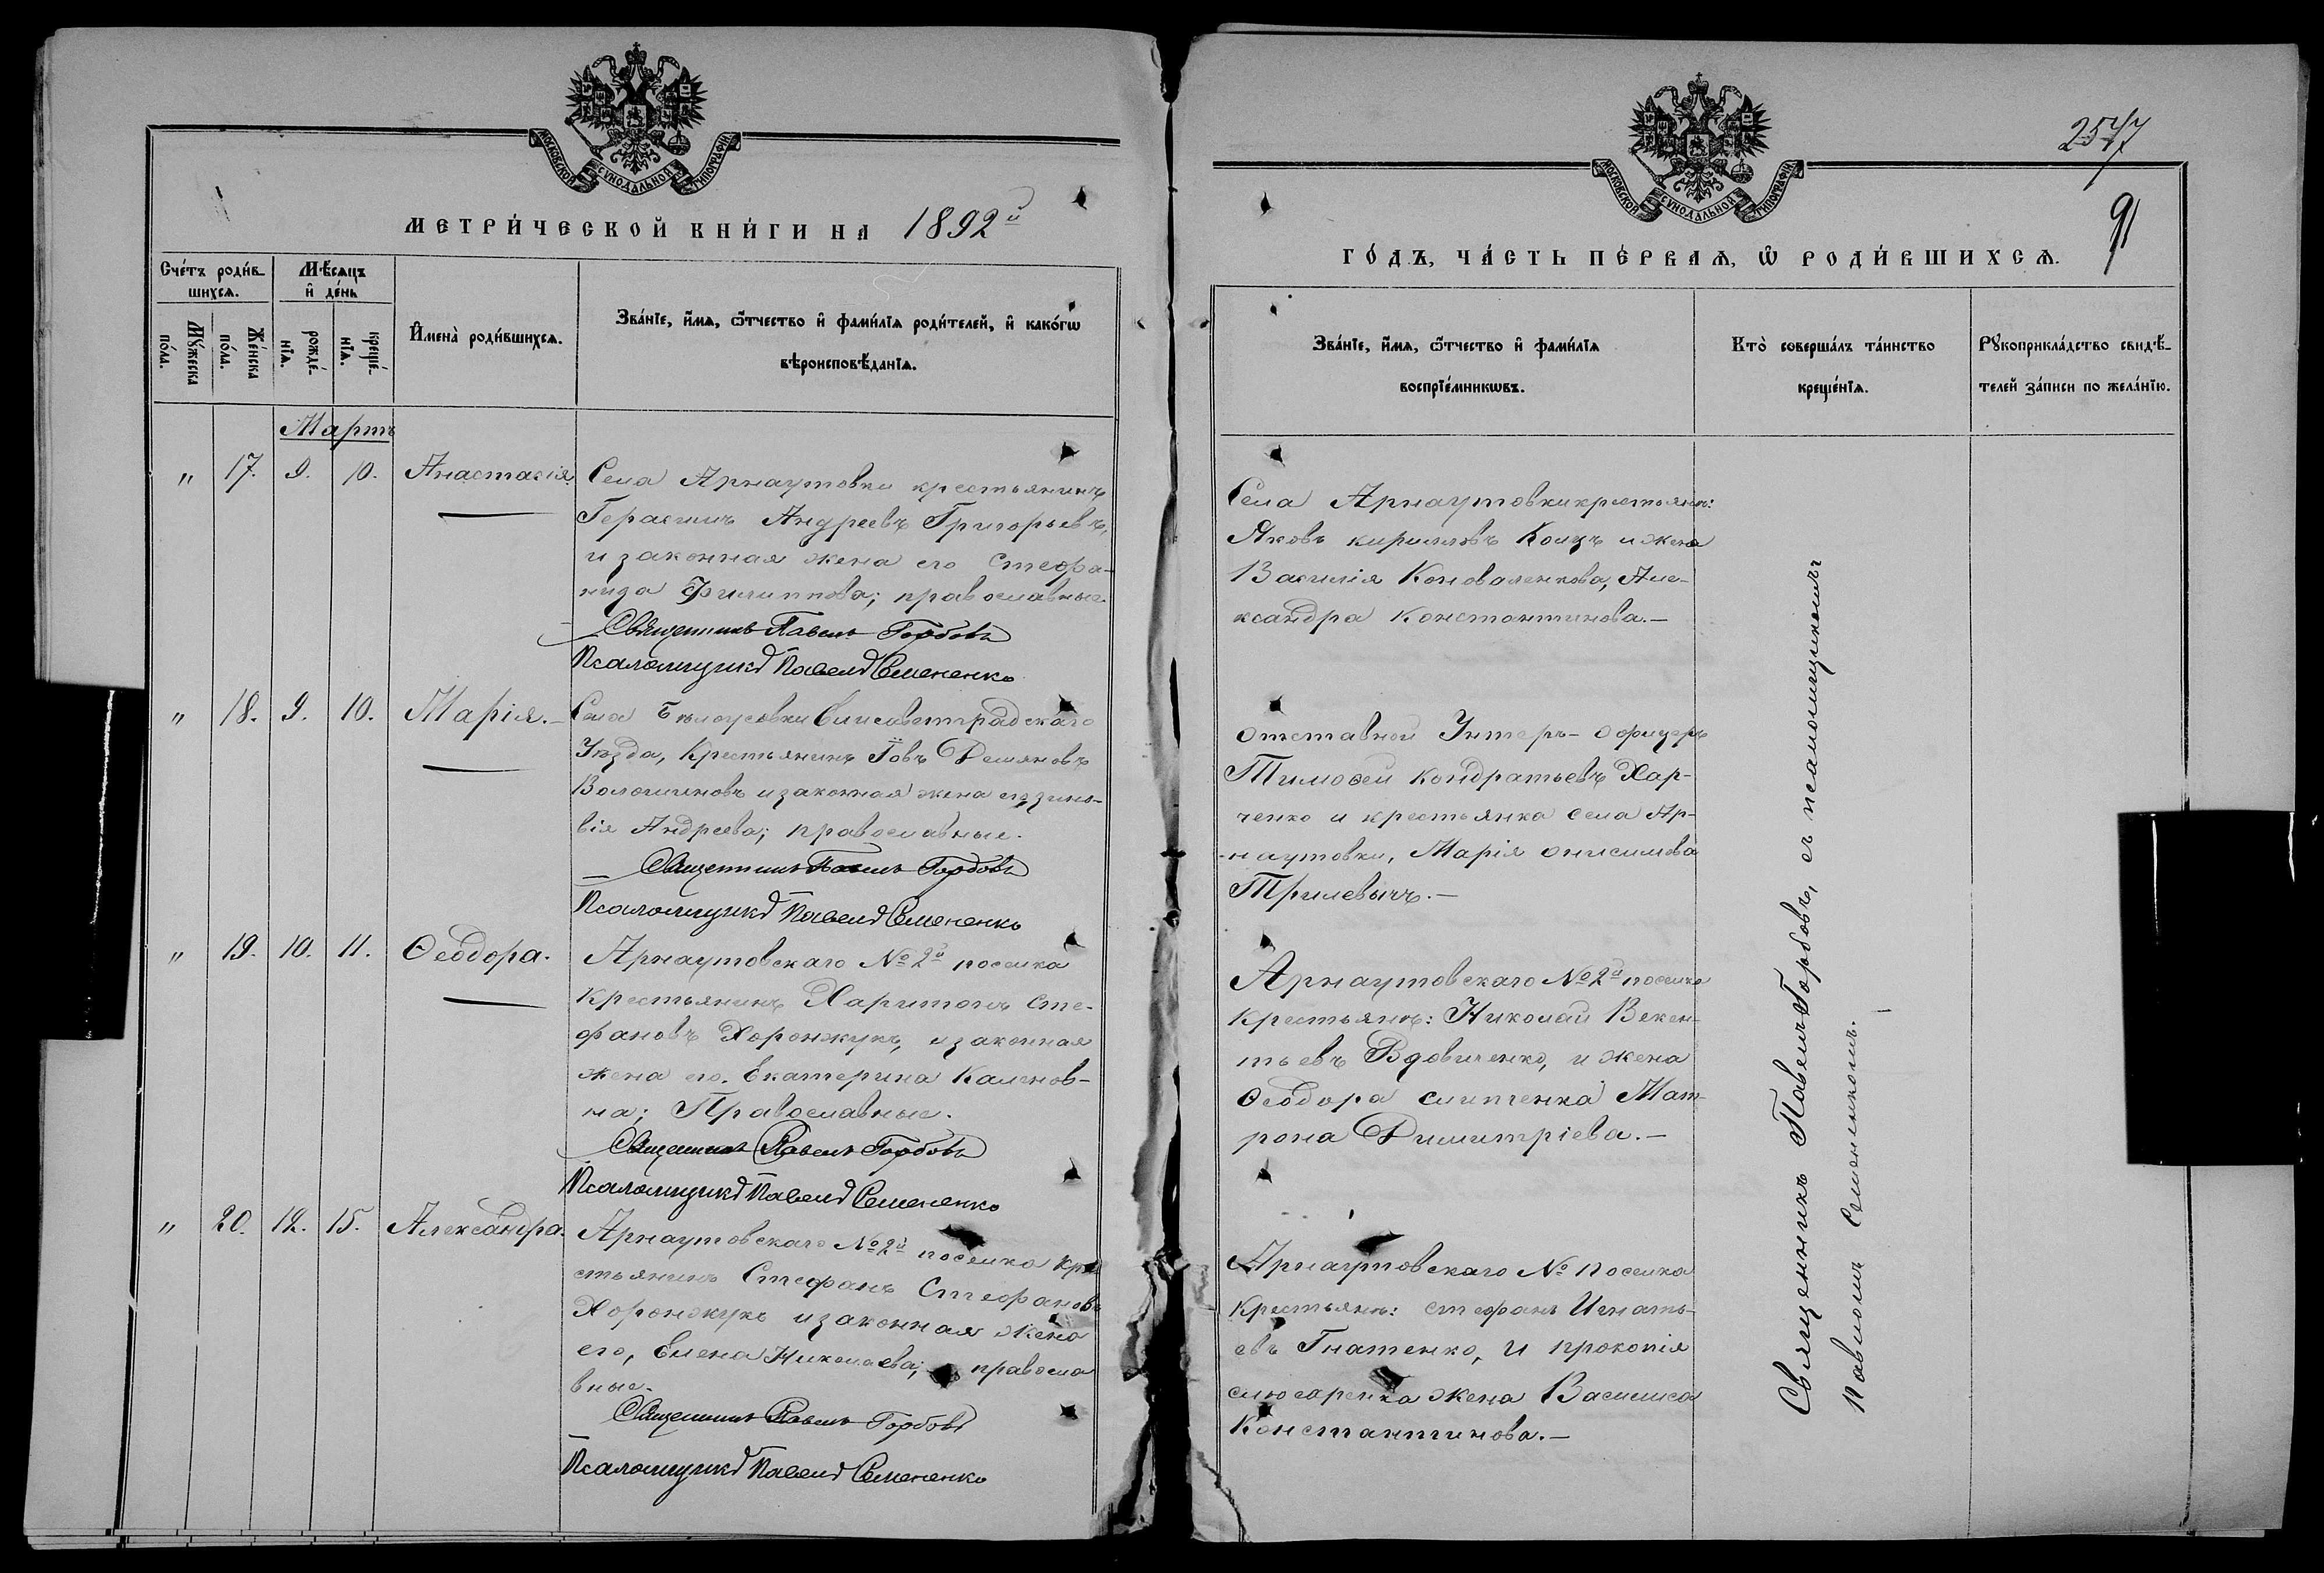 МОСКОВСКОЙ СѴНОДАЛЬНОЙ ТИПОГРАФІИ
МЕТРИ́ЧЕСКОЙ КНИ́ГИ НА 1892й
Сче́тъ роди́в-
шихсѧ.
Мѣ́сѧцъ
и҆ де́нь
Мꙋ́жеска
по́ла.
Же́нска
по́ла.
рожде́-
нїѧ.
креще́-
нїѧ.
И҆мена̀ роди́вшихсѧ.
Зва́нїе, и҆́мѧ, ѻ҆́тчество и҆ фамі́лїѧ роди́телей, и҆ како́гѡ
вѣроисповѣ́данїѧ.
Мартъ
" 17. 9. 10. Анастасія.
Села Арнаутовки крестьянинъ
Герасимъ Андреевъ Григорьевъ,
и законная жена его Стефа-
нида Филиппова; православные.
Священникъ Павелъ Горбовъ
Псаломщикъ Павелъ Семененко
" 18. 9. 10. Марія.
Села Бѣлоусовки Елисаветградскаго
Уѣзда, Крестьянинъ Іовъ Демяновъ
Волошиновъ и законная жена его Зино-
вія Андреева; православные.
Священникъ Павелъ Горбовъ
Псаломщикъ Павелъ Семененко
" 19. 10. 11. Ѳеодора.
Арнаутовскаго №2й поселка
Крестьянинъ Харитонъ Сте-
фановъ Хоронжукъ, и законная
жена его. Екатерина Каленов-
на; Православные.
Священникъ Павелъ Горбовъ
Псаломщикъ Павелъ Семененко
" 20. 12. 15. Александра.
Арнаутовскаго №2й поселка кре
стьянинъ Стефанъ Стефановъ
Хоронжукъ и законная жена
его, Елена Николаева; правосла
вные.
Священникъ Павелъ Горбовъ
Псаломщикъ Павелъ Семененко
2577
91
МОСКОВСКОЙ СѴНОДАЛЬНОЙ ТИПОГРАФІИ
ГО́ДЪ, ЧА́СТЬ ПЕ́РВАѦ, Ѽ РОДИ́ВШИХСѦ.
Зва́нїе, и҆́мѧ, ѻ҆́тчество и҆ фамі́лїѧ
воспрїе́мникѡвъ.
Кто̀ соверша́лъ та́инство
креще́нїѧ.
Рꙋкоприкла́дство свидѣ́-
телей за́писи по жела́нїю.
Села Арнаутовки крестьян:
Яковъ Кирилловъ Коцъ и жена
Василія Коноваленкова, Але-
ксандра Константинова.—
Отставной Унтеръ-Офицеръ
Тимоѳей Кондратьевъ Хар-
ченко и крестьянка села Ар-
наутовки, Марія Онисимова
Трилевычъ.—
Арнаутовскаго №2й поселка
Крестьянъ: Николай Векен-
тьевъ Вдовиченко, и жена
Ѳеодора Слипченка Мат-
рона Димитріева.—
Арнаутовскаго № поселка
Крестьянъ: Стефанъ Игнать-
евъ Гнатенко, и Прокопія
Слюсаренка жена Василиса
Константинова.—
Священникъ Павелъ Горбовъ, съ псаломщикомъ
Павломъ Семененкомъ.